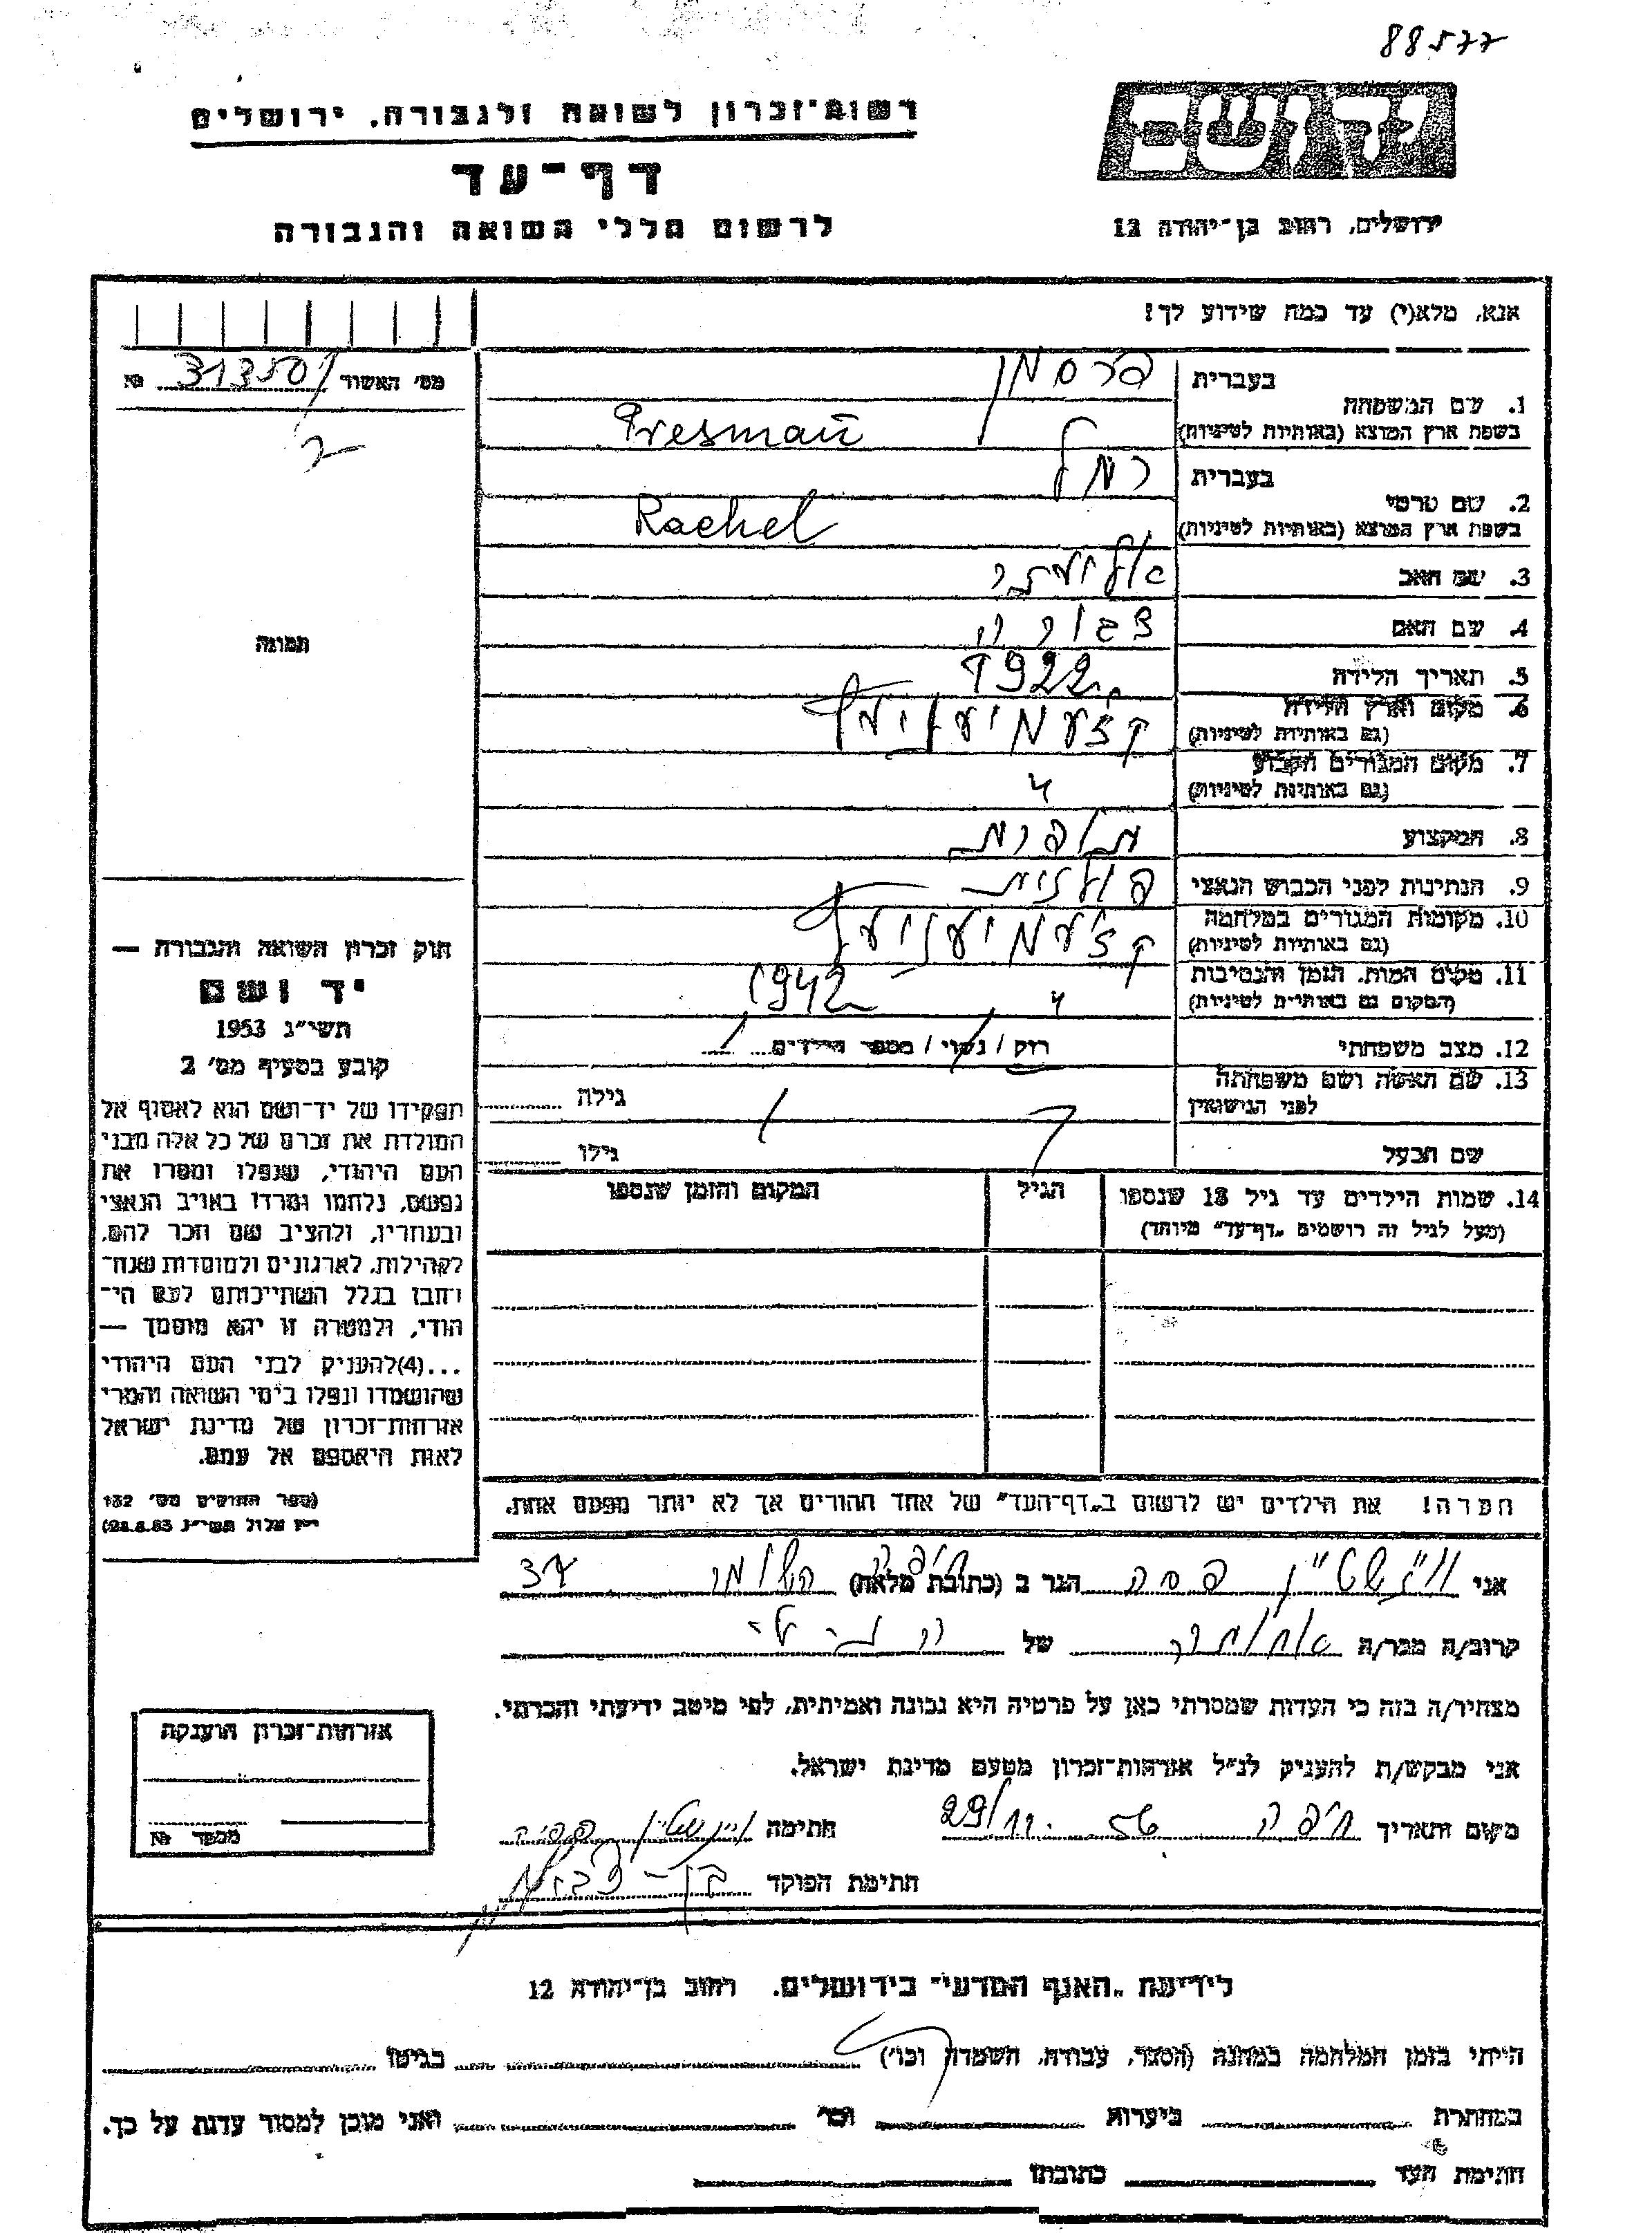 88577
רשות־זכרון לשואה ולגבורה, ירושלים
דף־עד
לרשום חללי השואה והגבורה
ידושם
ירושלים, רחוב בן־יהודה 12
אנא, מלא(י) עד כמה שידוע לך!
מס׳ האשור 313501 №
בעברית פרסמן
1. שם המשפחה
בשפת ארץ המוצא (באותיות לטיניות) Presman
בעברית רחל
2. שם פרטי
בשפת ארץ המוצא (באותיות לטיניות) Rachel
3. שם האב
4. שם האם צפורה
5. תאריך הלידה 1922
6. מקום וארץ הלידה קזעמיעניעץ
(גם באותיות לטיניות)
7. מקום המגורים הקבוע
(גם באותיות לטיניות) "
8. המקצוע תופרת
9. הנתינות לפני הכבוש הנאצי פולנית
10. מקומות המגורים במלחמה קזעמיעניעץ
(גם באותיות לטיניות)
11. מקום המות, הזמן והנסיבות " 1942
(המקום גם באותיות לטיניות)
12. מצב משפחתי רווק / נשוי / מספר הילדים
13. שם האשה ושם משפחתה
לפני הנישואין גילה
שם הבעל גילו
14. שמות הילדים עד גיל 18 שנספו הגיל המקום והזמן שנספו
(מעל לגיל זה רושמים „דף־עד" מיוחד)
תמונה
חוק זכרון השואה והגבורה —
יד ושם
תשי״ג 1953
קובע בסעיף מס׳ 2
תפקידו של יד־ושם הוא לאסוף אל
המולדת את זכרם של כל אלה מבני
העם היהודי, שנפלו ומסרו את
נפשם, נלחמו ומרדו באויב הנאצי
ובעוזריו, ולהציב שם וזכר להם,
לקהילות, לארגונים ולמוסדות שנח־
רבו בגלל השתייכותם לעם הי־
הודי, ולמטרה זו יהא מוסמך —
...(4)להעניק לבני העם היהודי
שהושמדו ונפלו בימי השואה והמרי
אזרחות־זכרון של מדינת ישראל
לאות היאספם אל עמם.
(ספר החוקים מס׳ 132
י״ז אלול תשי״ג 28.8.53)
הערה! את הילדים יש לרשום ב„דף־העד" של אחד ההורים אך לא יותר מפעם אחת.
אני פסה הגר ב (כתובת מלאה) חיפה החלוץ 37
קרוב/ה מכר/ה של
מצהיר/ה בזה כי העדות שמסרתי כאן על פרטיה היא נכונה ואמיתית, לפי מיטב ידיעתי והכרתי.
אני מבקש/ת להעניק לנ״ל אזרחות־זכרון מטעם מדינת ישראל.
מקום ותאריך חיפה 29/11. 56 חתימה
חתימת הפוקד
אזרחות־זכרון הוענקה
מספר №
לידיעת „האגף המדעי" בירושלים, רחוב בן־יהודה 12
הייתי בזמן המלחמה במחנה (הסגר, עבודה, השמדה וכו׳) בגיטו
במחתרת ביערות וכו׳ ואני מוכן למסור עדות על כך.
חתימת העד כתובתו